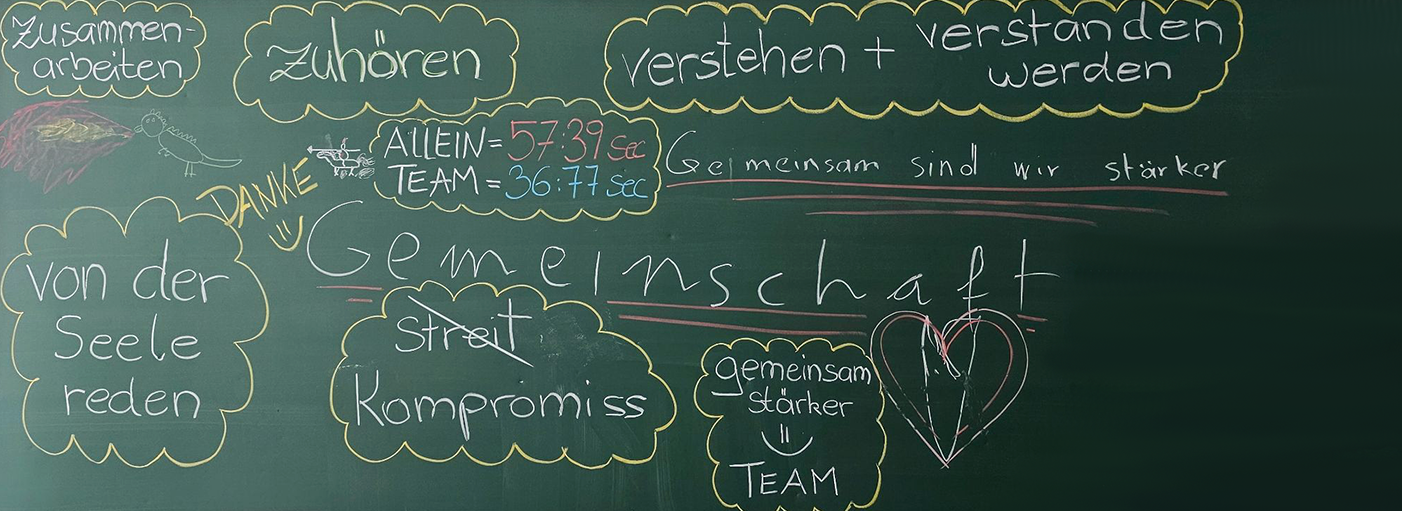 Zusammen-
arbeiten
zuhören
verstehen + verstanden
werden
ALLEIN = 57:39 sec
TEAM = 36:77 sec
Gemeinsam sind wir stärker
DANKE
Gemeinschaft
von der
Seele
reden
Streit
Kompromiss
gemeinsam
stärker
TEAM